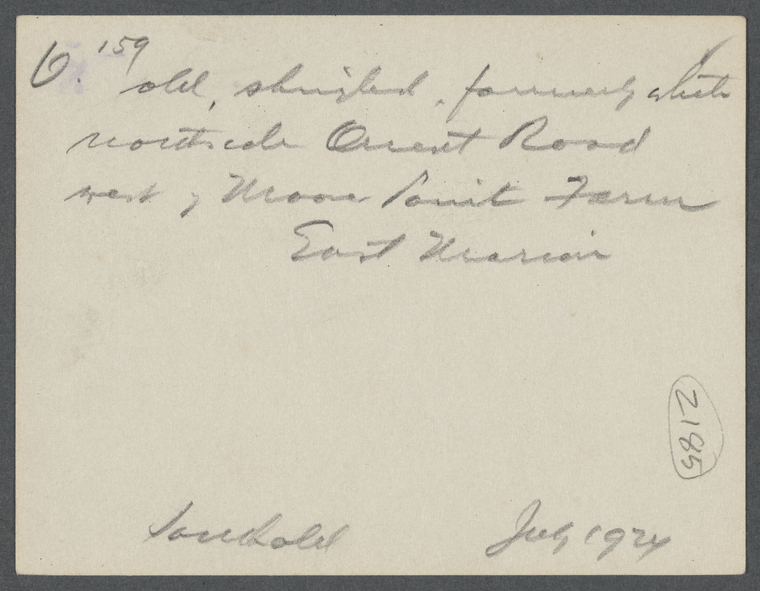 6. 159
old, shingled, formerly white
northside Orient Road
west of Moore Point Farm
East Marion
2185
Southold July 1924